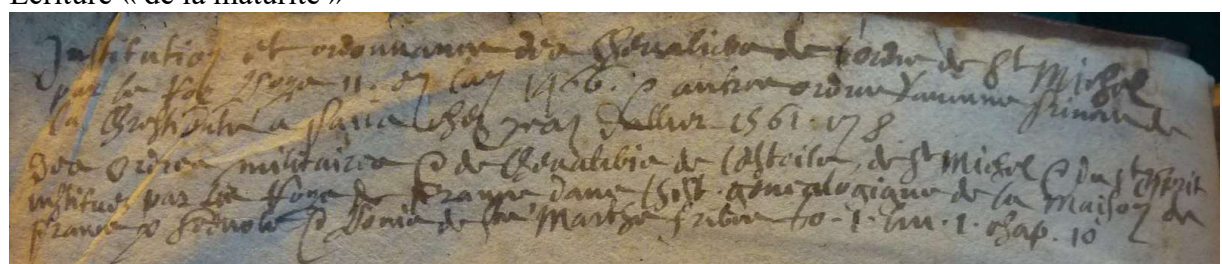 Ecriture « de la maturité »
Institution et ordonnance des Chevaliers de l'ordre de St Michel
par le Roy Loys 11. en l'an 1466. & autre ordre d'aucuns Princes de
la Chrestienté a Paris chez Jean Dallier 1561. in 8
des Ordres militaires & de Chevalerie de l'Estoile, de St Michel & du St Esprit
institués par les Roys de France dans l'hist. genealogique de la Maison de
France & Scevole & Louis de Ste Marthe freres to. 1. liv. 1. chap. 10